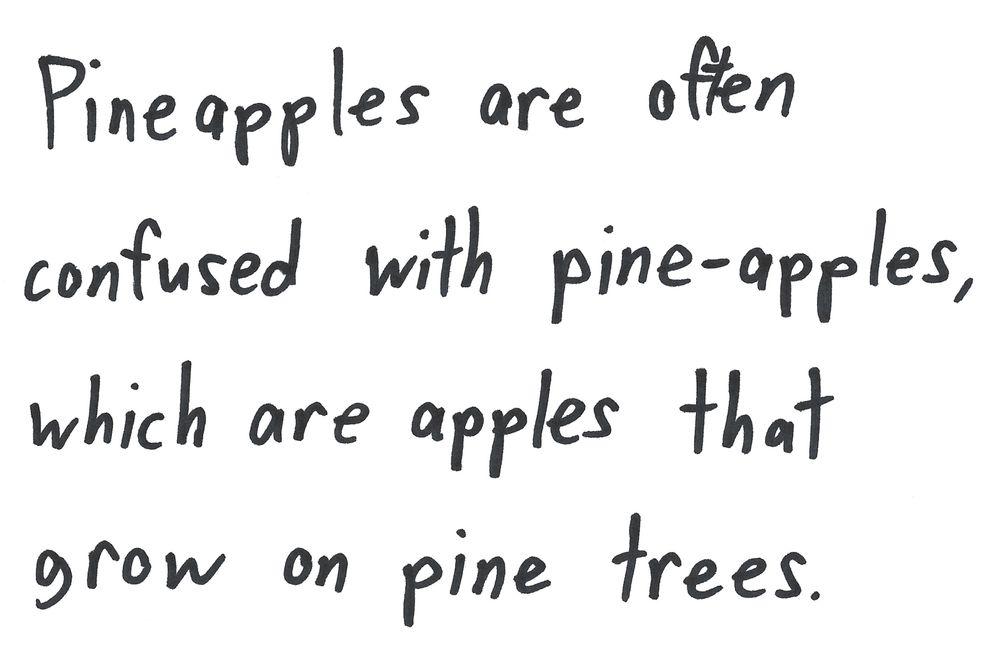 Pineapples are often
confused with pine-apples,
which are apples that
grow on pine trees.